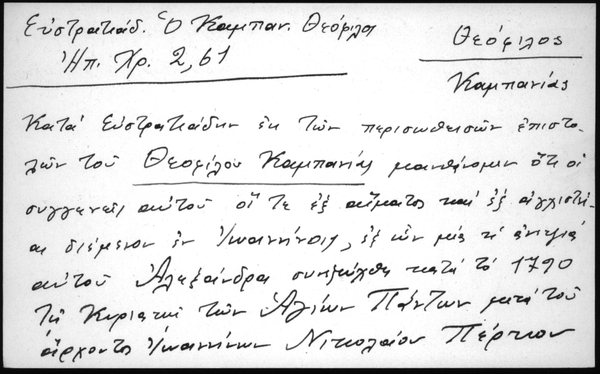 Εὐστρατιάδ. Ὁ Καμπαν. Θεόφιλος
Ἠπ. Χρ. 2, 61
Θεόφιλος
Καμπανίας
Κατά Εὐστρατιάδην ἐκ τῶν περισωθεισῶν ἐπιστο-
λῶν τοῦ Θεοφίλου Καμπανίας μανθάνομεν ὅτι οἱ
συγγενεῖς αὐτοῦ οἵ τε ἐξ αἵματος καί ἐξ ἀγχιστεί-
ας διέμενον ἐν Ἰωαννίνοις, ἐξ ὧν μία κ' ἀνεψιά
αὐτοῦ Ἀλεξάνδρα συνεζεύχθη κατά τό 1790
τῇ Κυριακῇ τῶν Ἁγίων Πάντων μετά τοῦ
ἄρχοντος Ἰωαννίνων Νικολάου Πέρτιου